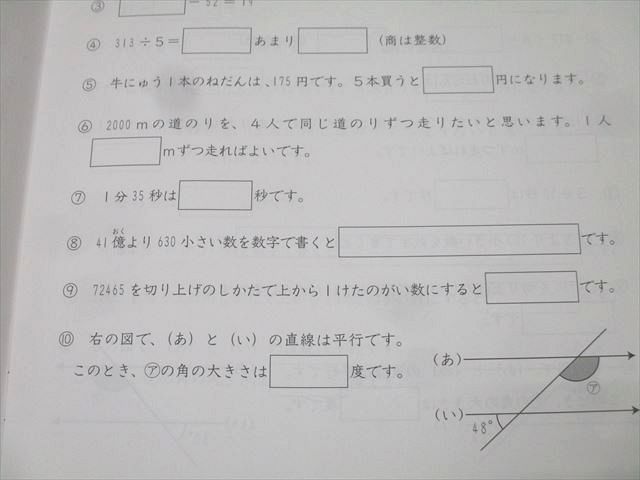 ③ － 52 ＝ 19
④ 313÷5＝ あまり （商は整数）
⑤ 牛にゅう1本のねだんは、175円です。5本買うと 円になります。
⑥ 2000mの道のりを、4人で同じ道のりずつ走りたいと思います。1人
mずつ走ればよいです。
⑦ 1分35秒は 秒です。
おく
⑧ 41億より630小さい数を数字で書くと です。
⑨ 72465を切り上げのしかたで上から1けたのがい数にすると です。
⑩ 右の図で、（あ）と（い）の直線は平行です。
このとき、㋐の角の大きさは 度です。
（あ）
㋐
（い）
48°